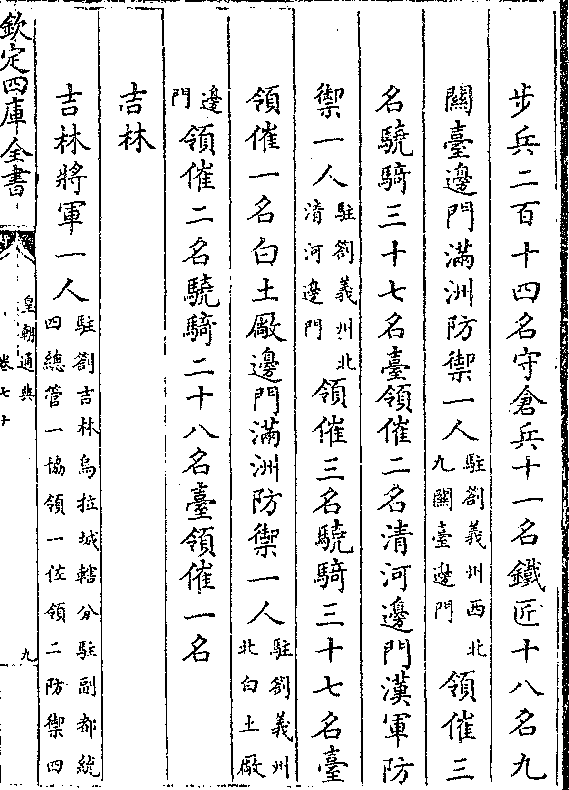 步兵二百十四名守倉兵十一名鐵匠十八名九
關臺邊門滿洲防禦一人駐劄義州西北九關臺邊門領催三
名驍騎三十七名臺領催二名清河邊門漢軍防
禦一人駐劄義州北清河邊門領催三名驍騎三十七名臺
領催一名白土厰邊門滿洲防禦一人駐劄義州北白土厰
邊門領催二名驍騎二十八名臺領催一名
吉林
吉林將軍一人駐劄吉林烏拉城轄分駐副都統四總管一協領一佐領二防禦四
欽定四庫全書
皇朝通典
卷七十
九